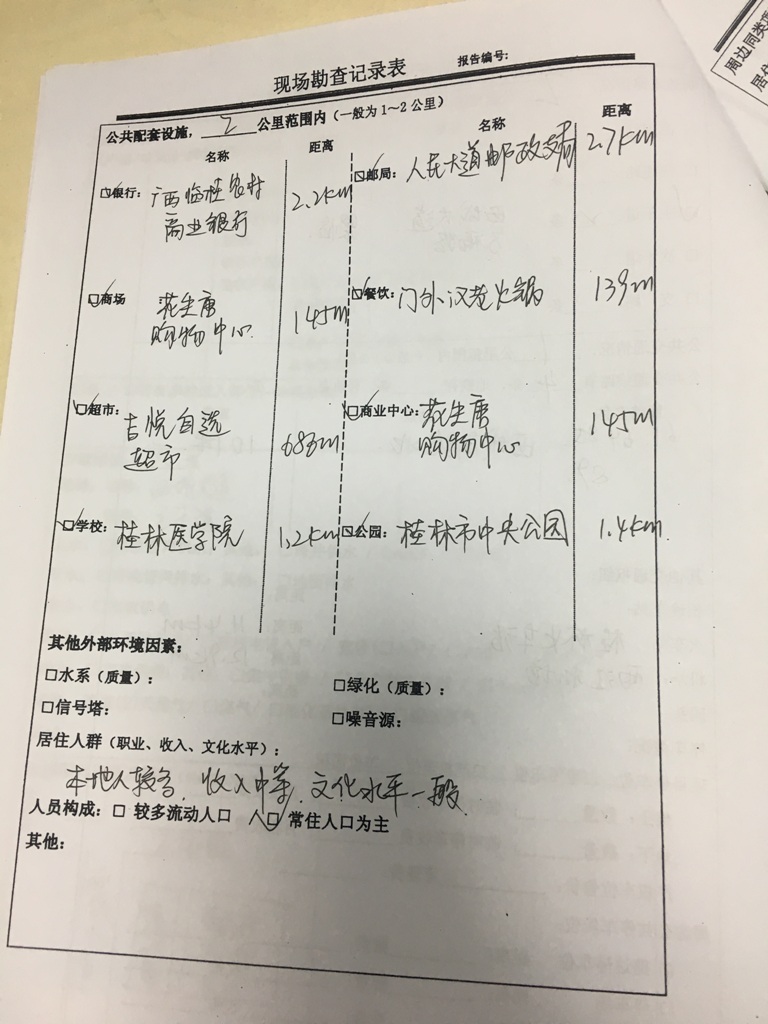 现场勘查记录表
报告编号:
公共配套设施, 2 公里范围内(一般为1~2公里)
名称 距离 名称 距离
□银行: 广西临桂农村 2.2km □邮局: 人民大道邮政支局 2.7km
商业银行
□商场 花生唐 145m □餐饮: 门外汉老火锅 139m
购物中心
□超市: 吉悦自选 683m □商业中心: 花生唐 145m
超市 购物中心
□学校: 桂林医学院 1.2km □公园: 桂林市中央公园 1.4km
其他外部环境因素:
□水系(质量): □绿化(质量):
□信号塔: □噪音源:
居住人群(职业、收入、文化水平):
本地人较多, 收入中等, 文化水平一般
人员构成: □ 较多流动人口 □ 常住人口为主
其他:
周边同类
居住